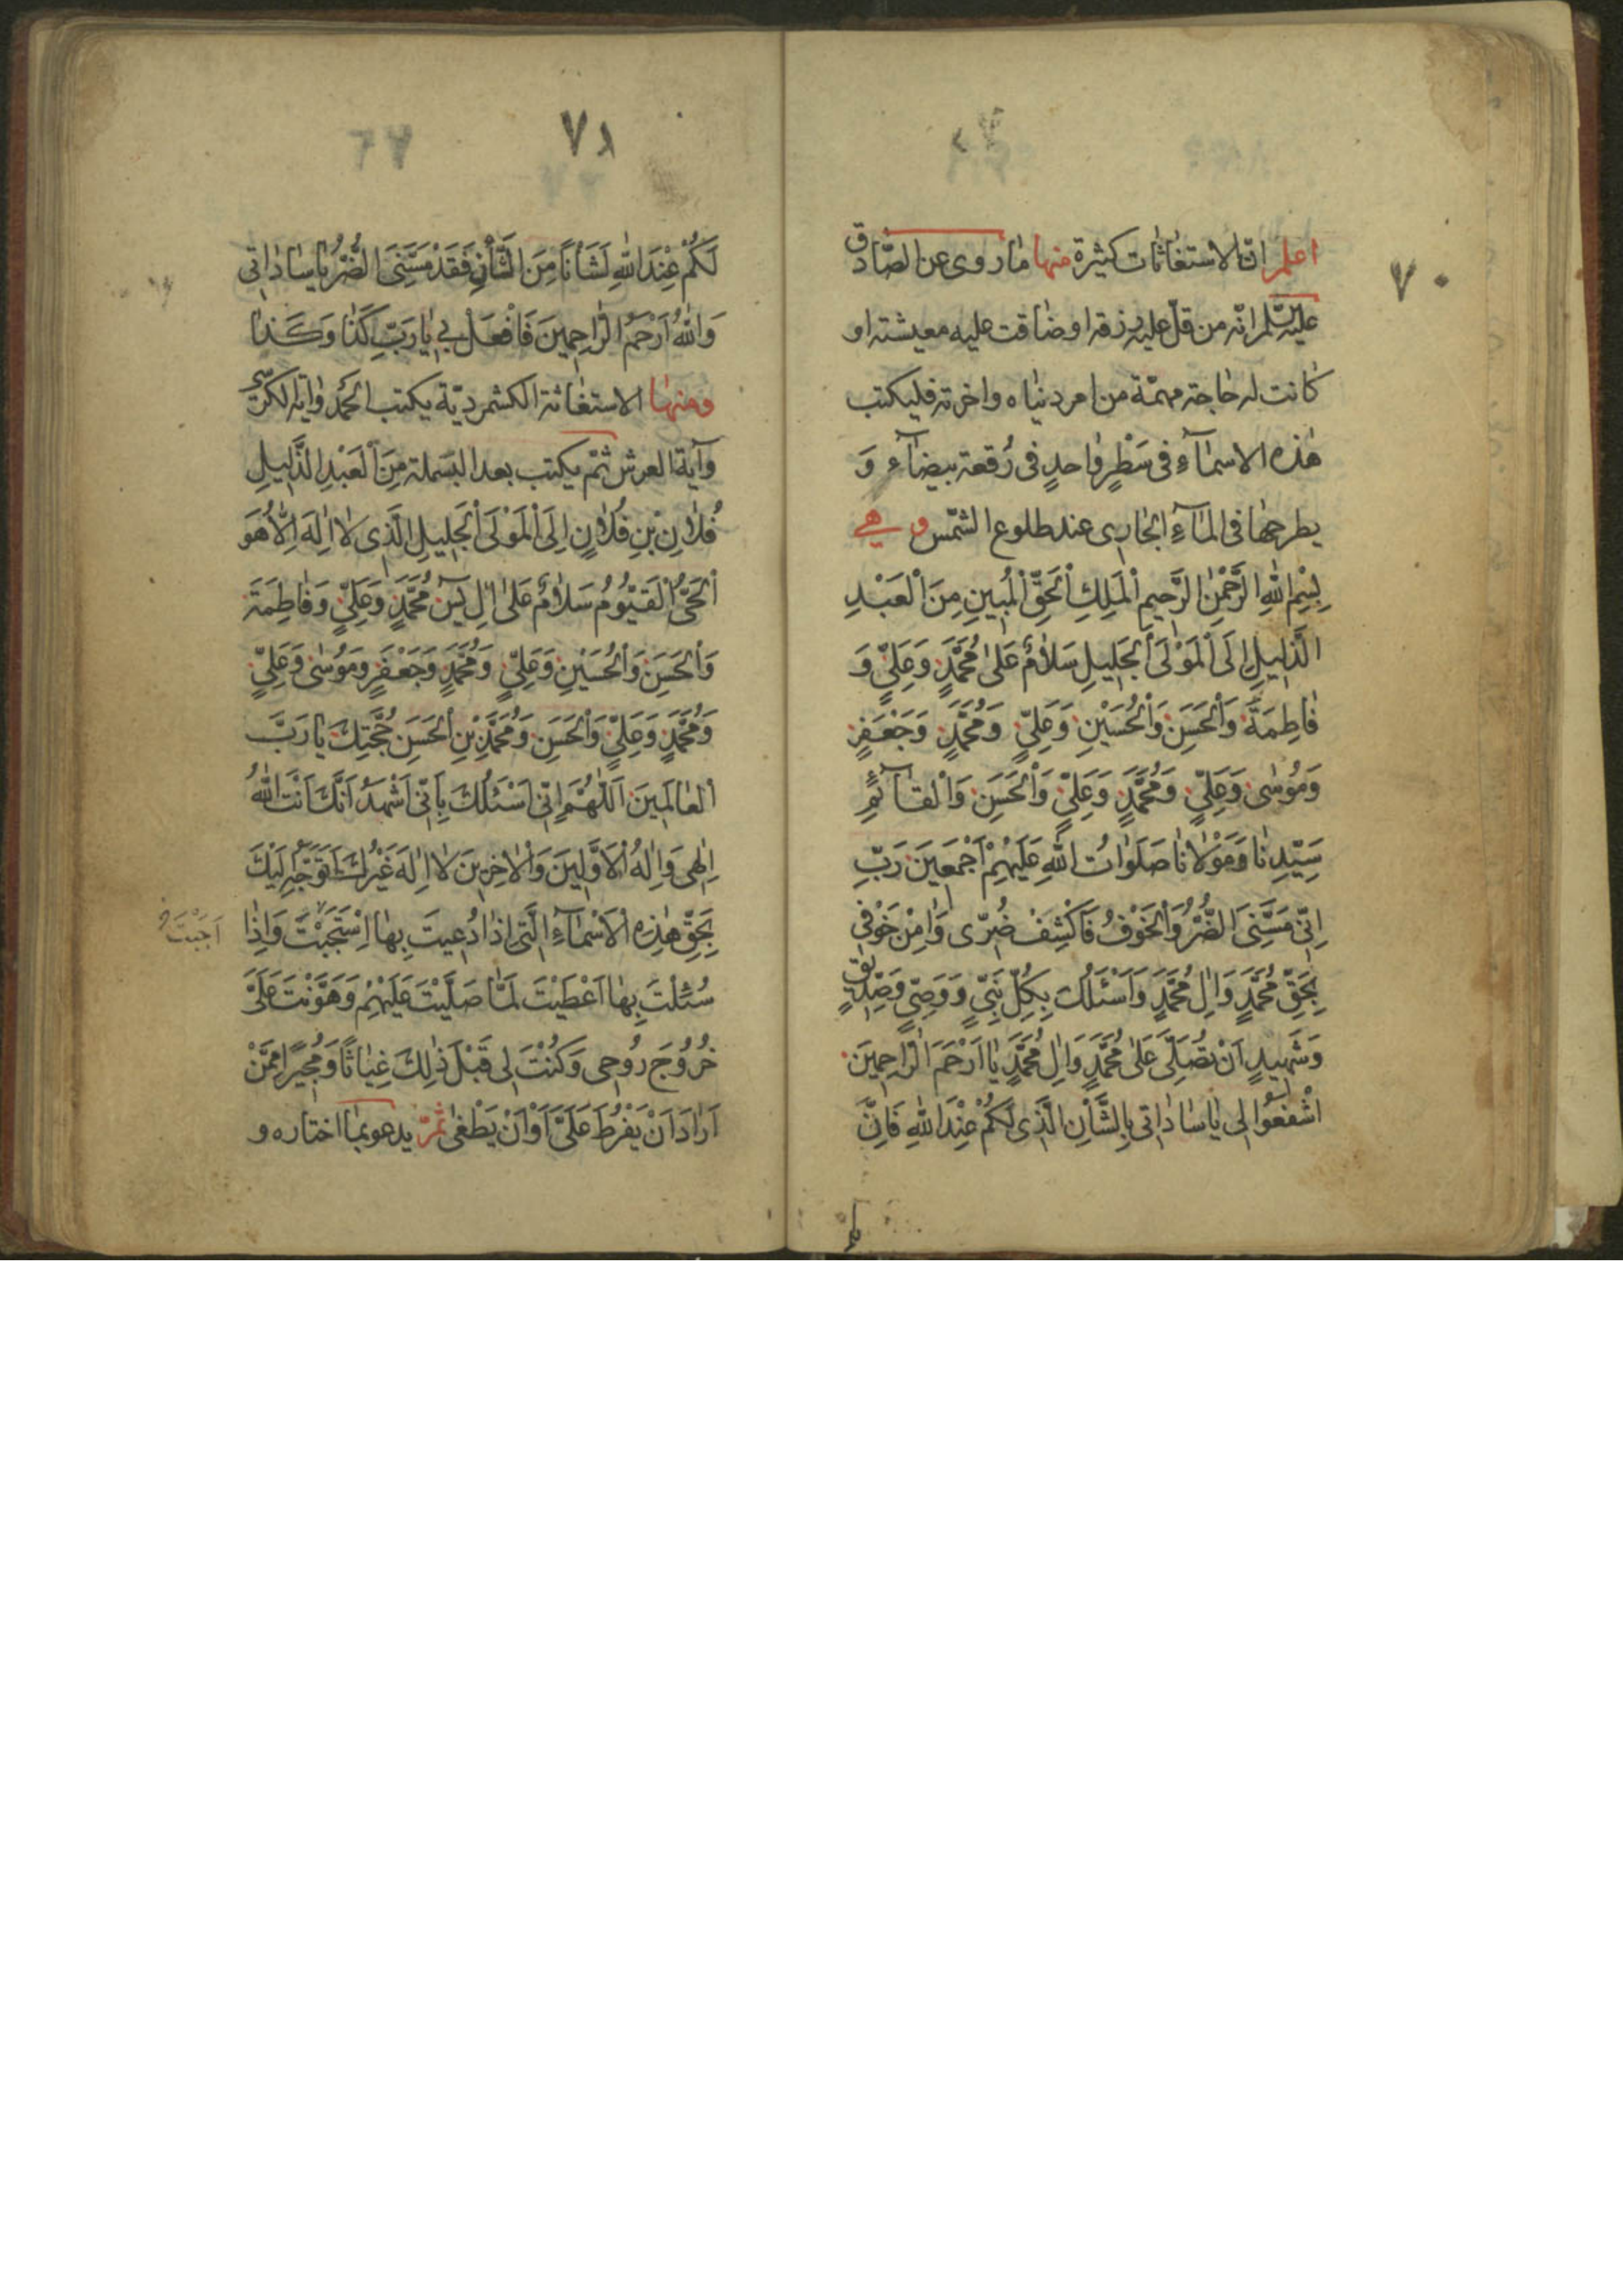 ٧٠
اعلم انّ الاستغاثات كثيرة منها ما روى عن الصّادق
عليه السّلم انّه من قلّ عليه رزقه او ضاقت عليه معيشته او
كانت له حاجة مهمّة من امر دنياه واخرته فليكتب
هٰذه الاسمآءِ فى سَطْرٍ واحدٍ فى رُقعة بيضآء وَ
يطرحها فى المآءِ الجارى عند طلوع الشّمس وهي
بِسْمِ اللهِ الرَّحْمٰنِ الرَّحيمِ الْمَلِكِ الْحَقِّ الْمُبينِ مِنَ الْعَبْدِ
الذَّليلِ اِلَى الْمَوْلَى الْجَليلِ سَلاٰمٌ عَلىٰ مُحَمَّدٍ وَعَلِيٍّ وَ
فاطِمَةَ وَالْحَسَنِ وَالْحُسَيْنِ وَعَلِيٍّ وَمُحَمَّدٍ وَجَعْفَرٍ
وَمُوسٰى وَعَلِيٍّ وَمُحَمَّدٍ وَعَلِيٍّ وَالْحَسَنِ وَالْقآئِمِ
سَيِّدِنا وَمَوْلاٰنا صَلَوٰاتُ اللهِ عَلَيْهِمْ اَجْمَعينَ رَبِّ
اِنّى مَسَّنِىَ الضُّرُّ وَالْخَوْفُ فَاكْشِفْ ضُرّى وَاٰمِنْ خَوْفى
بِحَقِّ مُحَمَّدٍ وَاٰلِ مُحَمَّدٍ وَاَسْئَلُكَ بِكُلِّ نَبِىٍّ وَوَصِىٍّ وَصِدّيقٍ
وَشَهيدٍ اَنْ تُصَلِّىَ عَلىٰ مُحَمَّدٍ وَاٰلِ مُحَمَّدٍ يٰا اَرْحَمَ الرّٰاحِمينَ
اشْفَعُوا لى يٰا سٰادٰاتى بِالشَّأْنِ الَّذى لَكُمْ عِنْدَ اللهِ فَاِنَّ
٧١
لَكُمْ عِنْدَ اللهِ لَشَأْنًا مِنَ الشَّأْنِ فَقَدْ مَسَّنِىَ الضُّرُّ يٰا سٰادٰاتى
وَاللهُ اَرْحَمُ الرّٰاحِمينَ فَافْعَلْ بى يٰا رَبِّ كَذٰا وَكَذٰا
ومنها الاستغاثة الكشمرديّة يكتب الحمد وآية الكرسى
وآية العرش ثمّ يكتب بعد البسملة مِنَ الْعَبْدِ الذَّليلِ
فُلاٰنِ بْنِ فُلاٰنٍ اِلَى الْمَوْلَى الْجَليلِ الَّذى لاٰ اِلٰهَ اِلاّٰ هُوَ
الْحَىُّ الْقَيُّومُ سَلاٰمٌ عَلىٰ اٰلِ يٰسٓ مُحَمَّدٍ وَعَلِيٍّ وَفاطِمَةَ
وَالْحَسَنِ وَالْحُسَيْنِ وَعَلِيٍّ وَمُحَمَّدٍ وَجَعْفَرٍ وَمُوسٰى وَعَلِيٍّ
وَمُحَمَّدٍ وَعَلِيٍّ وَالْحَسَنِ وَمُحَمَّدِ بْنِ الْحَسَنِ حُجَّتِكَ يٰا رَبَّ
الْعٰالَمينَ اَللّٰهُمَّ اِنّى اَسْئَلُكَ بِاَنّى اَشْهَدُ اَنَّكَ اَنْتَ اللهُ
اِلٰهى وَاِلٰهُ الْاَوَّلينَ وَالْاٰخِرينَ لاٰ اِلٰهَ غَيْرُكَ اَتَوَجَّهُ اِلَيْكَ
بِحَقِّ هٰذِهِ الْاَسْمآءِ الَّتى اِذٰا دُعيتَ بِهٰا اِسْتَجَبْتَ وَاِذٰا
اَجَبْتَ
سُئِلْتَ بِهٰا اَعْطَيْتَ لَمّٰا صَلَّيْتَ عَلَيْهِمْ وَهَوَّنْتَ عَلَىَّ
خُرُوجَ رُوحى وَكُنْتَ لى قَبْلَ ذٰلِكَ غِيٰاثًا وَمُجيرًا مِمَّنْ
اَرٰادَ اَنْ يَفْرُطَ عَلَىَّ اَوْ اَنْ يَطْغىٰ ثمّ يدعو بما اختاره و